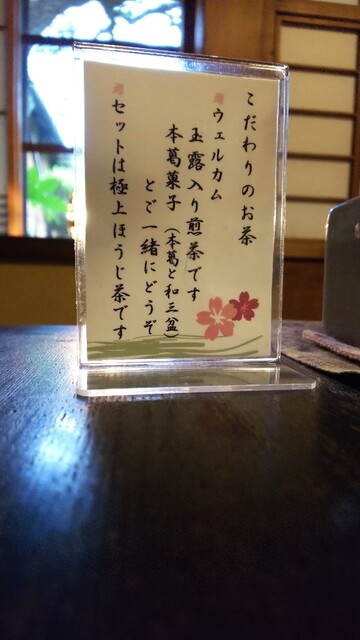 こだわりのお茶
ウェルカム
玉露入り煎茶です
本葛菓子（本葛と和三盆）
とご一緒にどうぞ
セットは極上ほうじ茶です